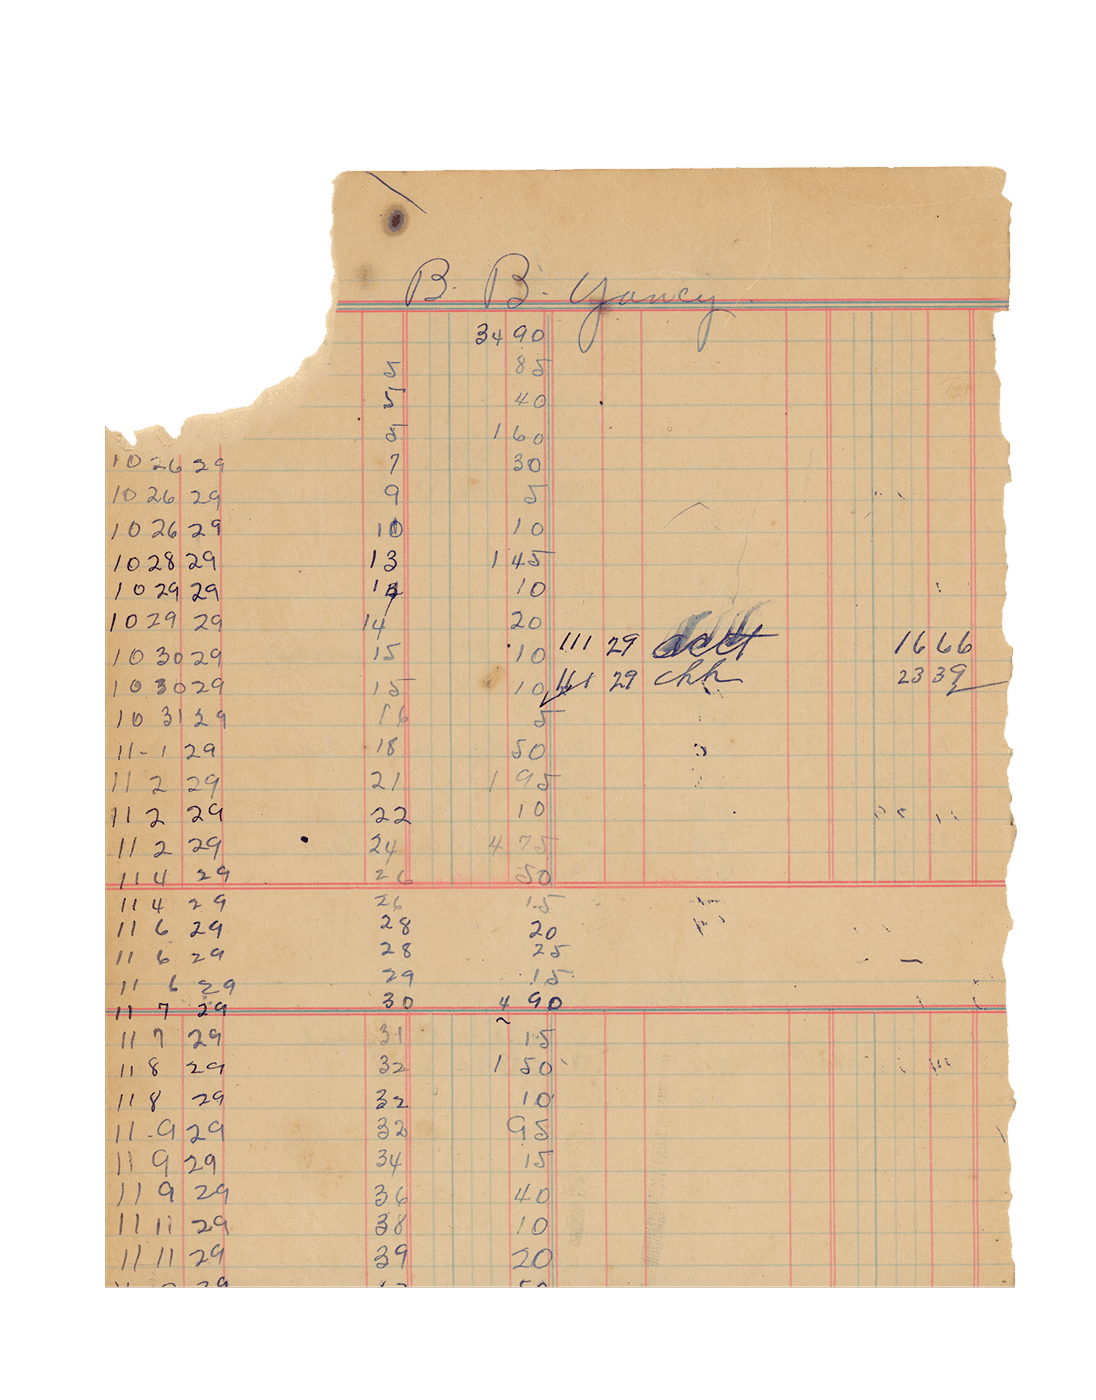 B. B. Yancy
34 90
5 85
5 40
5 1 60
10 26 29 7 30
10 26 29 9 5
10 26 29 10 10
10 28 29 13 1 45
10 29 29 10
10 29 29 14 20
10 30 29 15 10 11 1 29 acct 16 66
10 30 29 15 10 11 1 29 chk 23 39
10 31 29 16 5
11-1 29 18 50
11 2 29 21 1 95
11 2 29 22 10
11 2 29 24 4 75
11 4 29 26 50
11 4 29 26 15
11 6 29 28 20
11 6 29 28 25
11 6 29 29 15
11 7 29 30 4 90
11 7 29 31 15
11 8 29 32 1 50
11 8 29 32 10
11-9 29 32 95
11 9 29 34 15
11 9 29 36 40
11 11 29 38 10
11 11 29 39 20